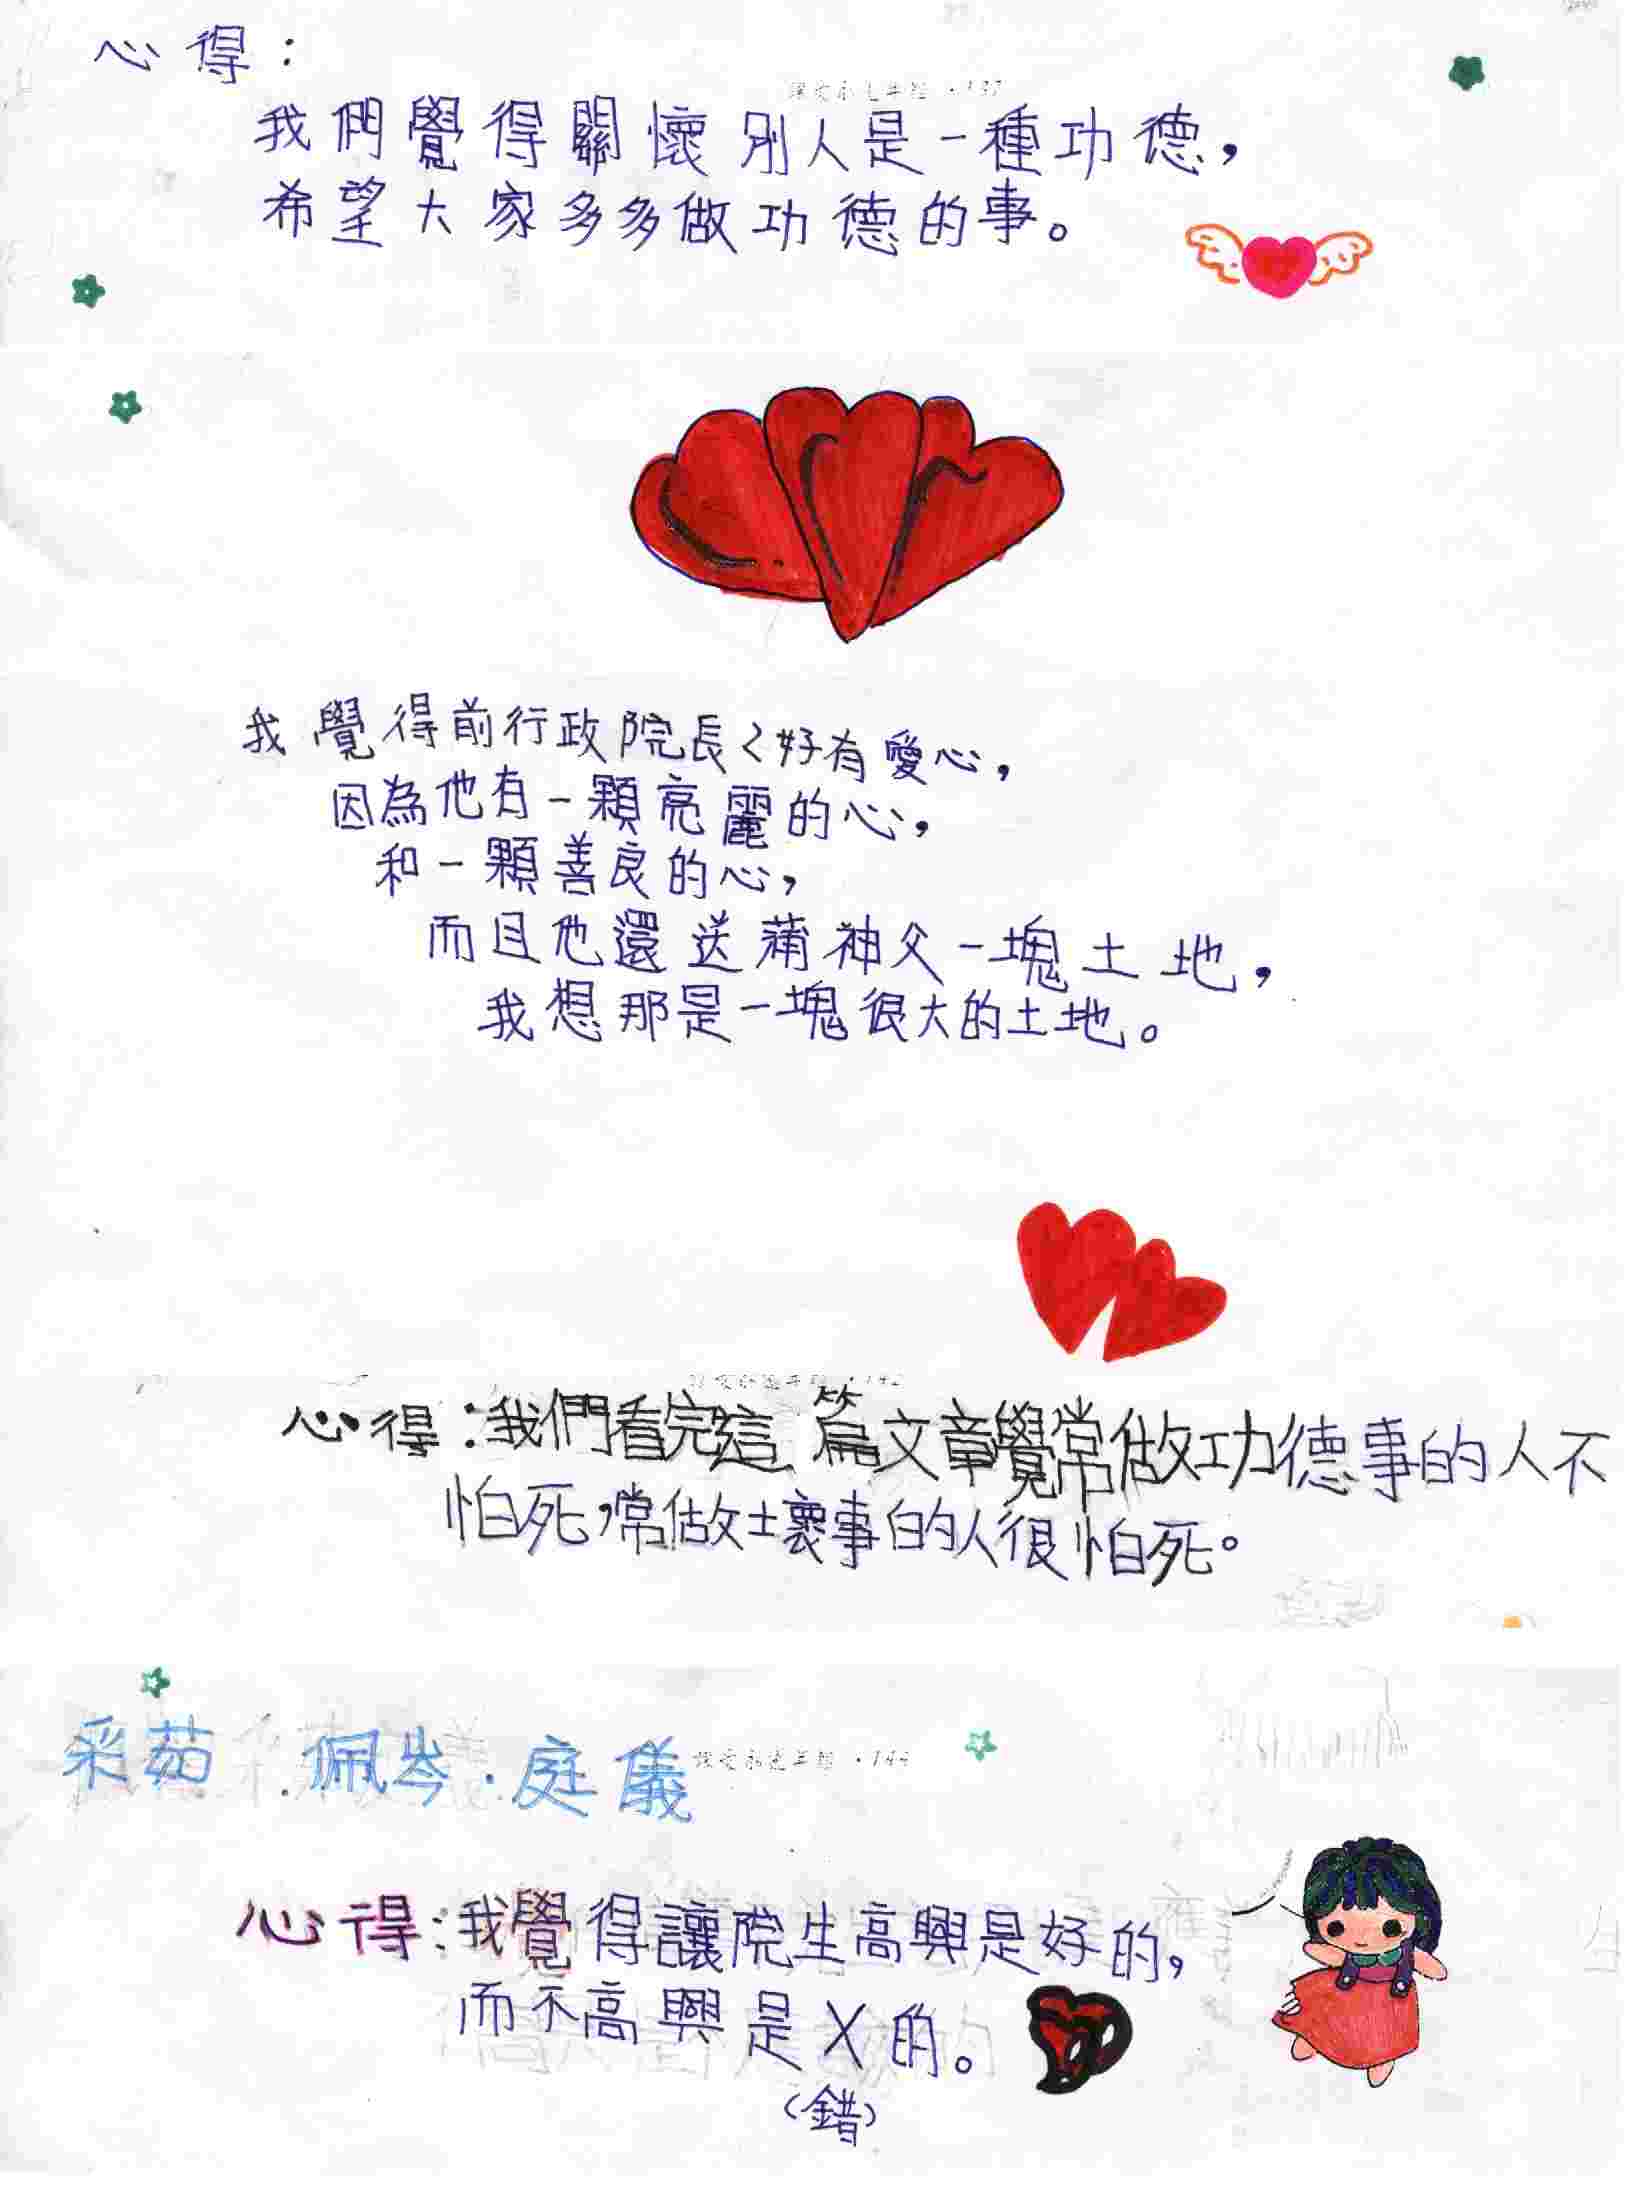 心得：
讓愛永遠年輕・137
我們覺得關懷別人是一種功德，
希望大家多多做功德的事。
我覺得前行政院長ㄑ好有愛心，
因為他有一顆亮麗的心，
和一顆善良的心，
而且他還送蒲神父一塊土地，
我想那是一塊很大的土地。
讓愛永遠年輕・142
心得：我們看完這篇文章覺常做功德事的人不
怕死，常做壞事的人很怕死。
采茹．佩岑．庭儀
讓愛永遠年輕・144
心得：我覺得讓院生高興是好的，
而不高興是X的。
（錯）